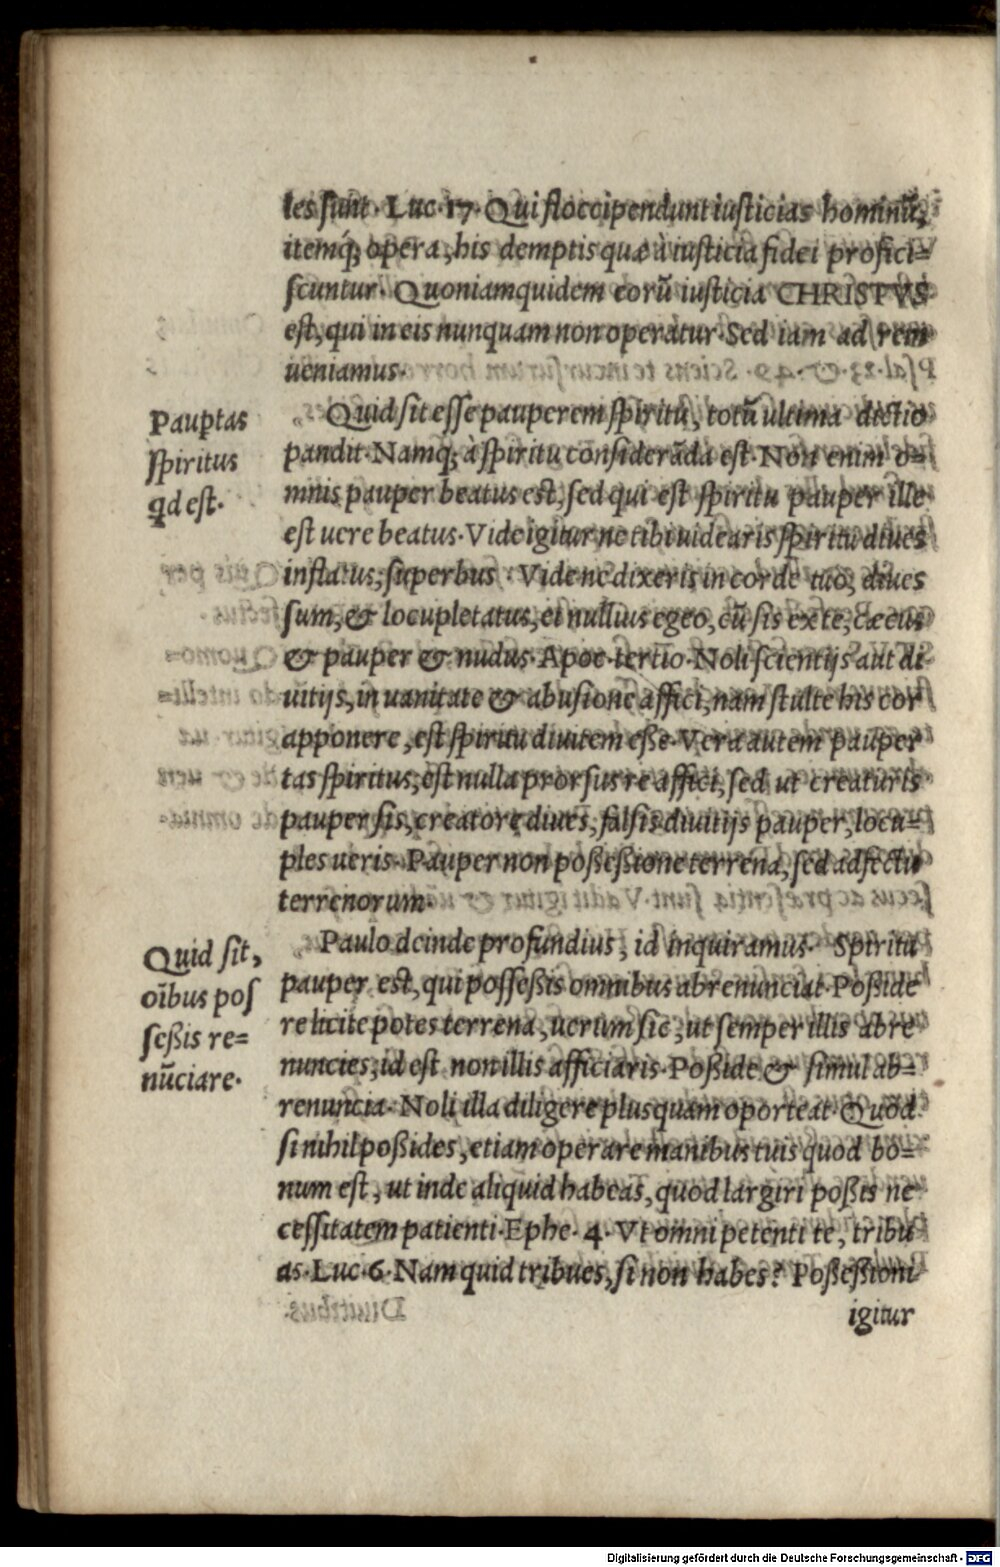 les sunt. Luc. 17. Qui floccipendunt iusticias hominū,
itemq́; opera, his demptis quæ à iusticia fidei profici=
scuntur. Quoniamquidem eorū iusticia CHRISTVS
est, qui in eis nunquam non operatur. Sed iam ad rem
ueniamus.
Pauptas
spiritus
qd est.
Quid sit esse pauperem spiritu, totū ultima dictio
pandit. Namq; à spiritu considerāda est. Non enim o=
mnis pauper beatus est, sed qui est spiritu pauper ille
est uere beatus. Vide igitur ne tibi uidearis spiritu diues
inflatus, superbus. Vide ne dixeris in corde tuo, diues
sum, & locupletatus, et nullius egeo, cū sis ex te, cæcus
& pauper & nudus. Apoc. tertio. Noli scientijs aut di
uitijs, in uanitate & abusione affici, nam stulte his cor
apponere, est spiritu diuitem eße. Vera autem pauper
tas spiritus, est nulla prorsus re affici, sed ut creaturis
pauper sis, creatore diues, falsis diuitijs pauper, locu=
ples ueris. Pauper non poßeßione terrena, sed adfectu
terrenorum.
Quid sit,
oībus pos
seßis re=
nūciare.
Paulo deinde profundius, id inquiramus. Spiritu
pauper est, qui posseßis omnibus abrenunciat. Poßide
re licite potes terrena, uerum sic, ut semper illis abre
nuncies, id est non illis afficiaris. Poßide & simul ab=
renuncia. Noli illa diligere plusquam oporteat. Quod
si nihil poßides, etiam operare manibus tuis quod bo=
num est, ut inde aliquid habeas, quod largiri poßis ne
cessitatem patienti. Ephe. 4. Vt omni petenti te, tribu
as. Luc. 6. Nam quid tribues, si non habes? Poßeßioni
igitur
Digitalisierung gefördert durch die Deutsche Forschungsgemeinschaft - DFG